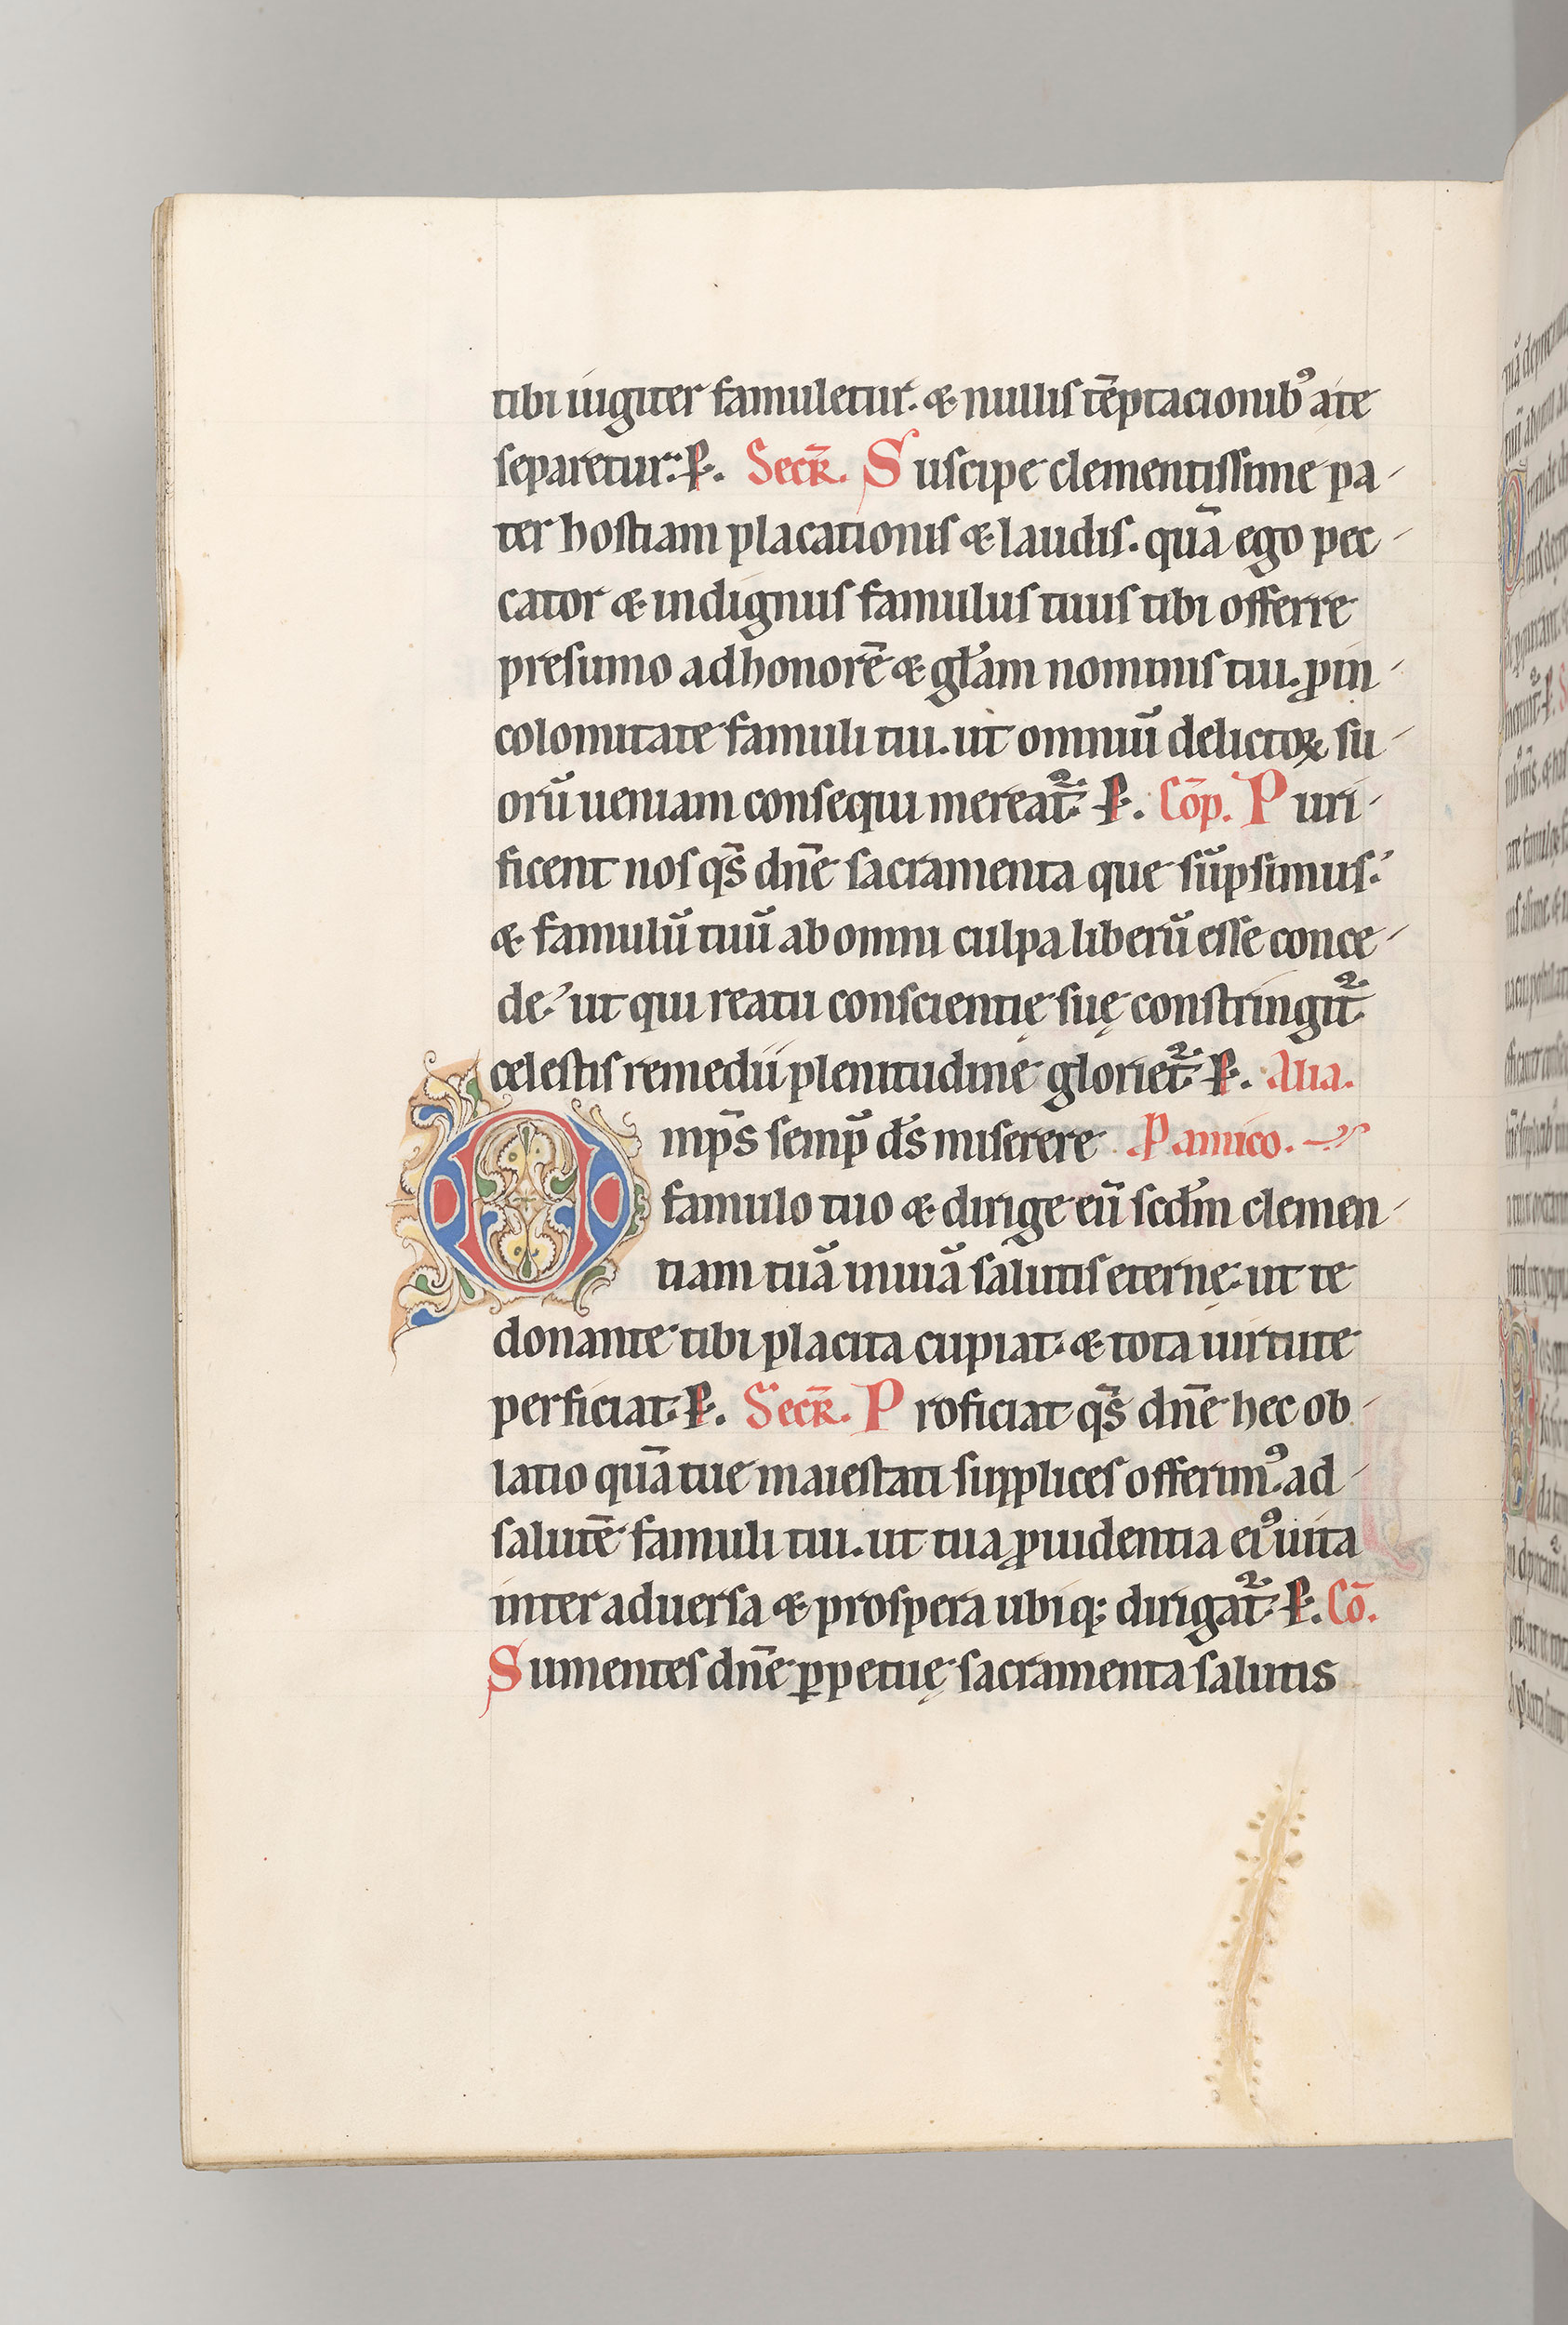 tibi iugiter famuletur. & nullis tēptacionibꝰ ate
separetur. P. Secr̄. Suscipe clementissime pa-
ter hostiam placationis & laudis. quā ego pec-
cator & indignus famulus tuus tibi offerre
presumo adhonorē & gl̓am nominis tui. ꝓin-
colomitate famuli tui. ut omniū delictoꝝ su-
orū ueniam consequi mereat᷑. P. Cōp. Puri-
ficent nos qs̄ dn̄e sacramenta que sūpsimus.
& famulū tuū abomni culpa liberū esse conce-
de. ut qui reatu conscientię suę constringit᷑
celestis remedii plenitudine gloriet᷑. P. Alia.
Omps̄ semp̄ ds̄ miserere P amico.
famulo tuo & dirige eū scd̓m clemen-
tiam tuā inuiā salutis eternę. ut te
donante tibi placita cupiat. & tota uirtute
perficiat. P. Secr̄. Proficiat qs̄ dn̄e hec ob-
latio quā tue maiestati supplices offerimꝰ. ad-
salutē famuli tui. ut tua ꝓuidentia eiꝰ uita
inter aduersa & prospera ubiq; dirigat᷑. P. Cō.
Sumentes dn̄e ꝑpetuę sacramenta salutis